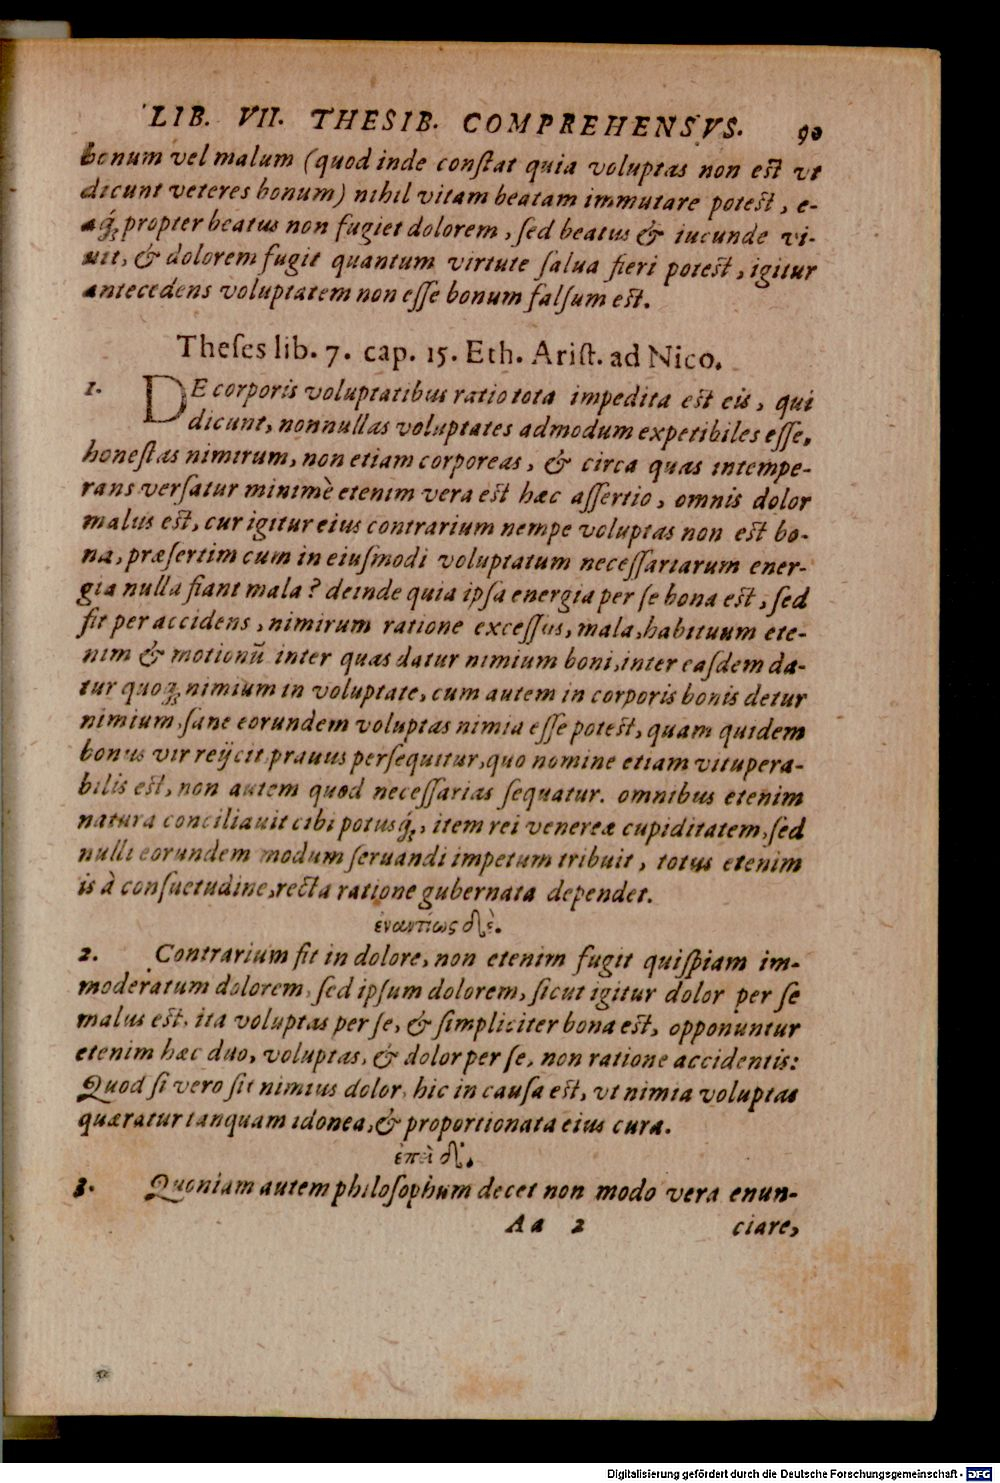 LIB. VII. THESIB. COMPREHENSVS. 90
bonum vel malum (quod inde constat quia voluptas non est vt
dicunt veteres bonum) nihil vitam beatam immutare potest, e-
aq́; propter beatus non fugiet dolorem, sed beatus & iucunde vi-
uit, & dolorem fugit quantum virtute salua fieri potest, igitur
antecedens voluptatem non esse bonum falsum est.
Theses lib. 7. cap. 15. Eth. Arist. ad Nico.
1. DE corporis voluptatibus ratio tota impedita est eis, qui
dicunt, nonnullas voluptates admodum expetibiles esse,
honestas nimirum, non etiam corporeas, & circa quas intempe-
rans versatur minimè etenim vera est hæc assertio, omnis dolor
malus est, cur igitur eius contrarium nempe voluptas non est bo-
na, præsertim cum in eiusmodi voluptatum necessariarum ener-
gia nulla fiant mala? deinde quia ipsa energia per se bona est, sed
fit per accidens, nimirum ratione excessus, mala, habituum ete-
nim & motionũ inter quas datur nimium boni, inter easdem da-
tur quoq; nimium in voluptate, cum autem in corporis bonis detur
nimium, sane eorundem voluptas nimia esse potest, quam quidem
bonus vir reijcit prauus persequitur, quo nomine etiam vitupera-
bilis est, non autem quod necessarias sequatur. omnibus etenim
natura conciliauit cibi potusq́;, item rei venereæ cupiditatem, sed
nulli eorundem modum seruandi impetum tribuit, totus etenim
is à consuetudine, recta ratione gubernata dependet.
ἐναντίως δὲ.
2. Contrarium fit in dolore, non etenim fugit quispiam im-
moderatum dolorem, sed ipsum dolorem, sicut igitur dolor per se
malus est, ita voluptas per se, & simpliciter bona est, opponuntur
etenim hæc duo, voluptas, & dolor per se, non ratione accidentis:
Quod si vero sit nimius dolor, hic in causa est, vt nimia voluptas
quæratur tanquam idonea, & proportionata eius cura.
ἐπεὶ δ'.
3. Quoniam autem philosophum decet non modo vera enun-
Aa 2 ciare,
Digitalisierung gefördert durch die Deutsche Forschungsgemeinschaft - DFG